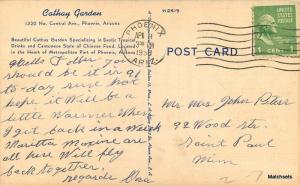 Cathay Garden
1320 No. Central Ave., Phoenix, Arizona
Beautiful Cathay Garden Specializing in Exotic Tropical
Drinks and Cantonese Style of Chinese Food. Located
in the Heart of Metropolitan Part of Phoenix, Arizona
PHOENIX
APR
1951
ARIZ.
UNITED STATES POSTAGE
1 CENT 1
POST CARD
Hello Folks. you
should be it is 91
to-day sure hot
hope it will be a
little warmer when
I get back in a week
Maxine are
all here Will fly
back together.
regards
Mr Mrs John Peters
92 Wood str.
Saint Paul
Minn
Matchsets